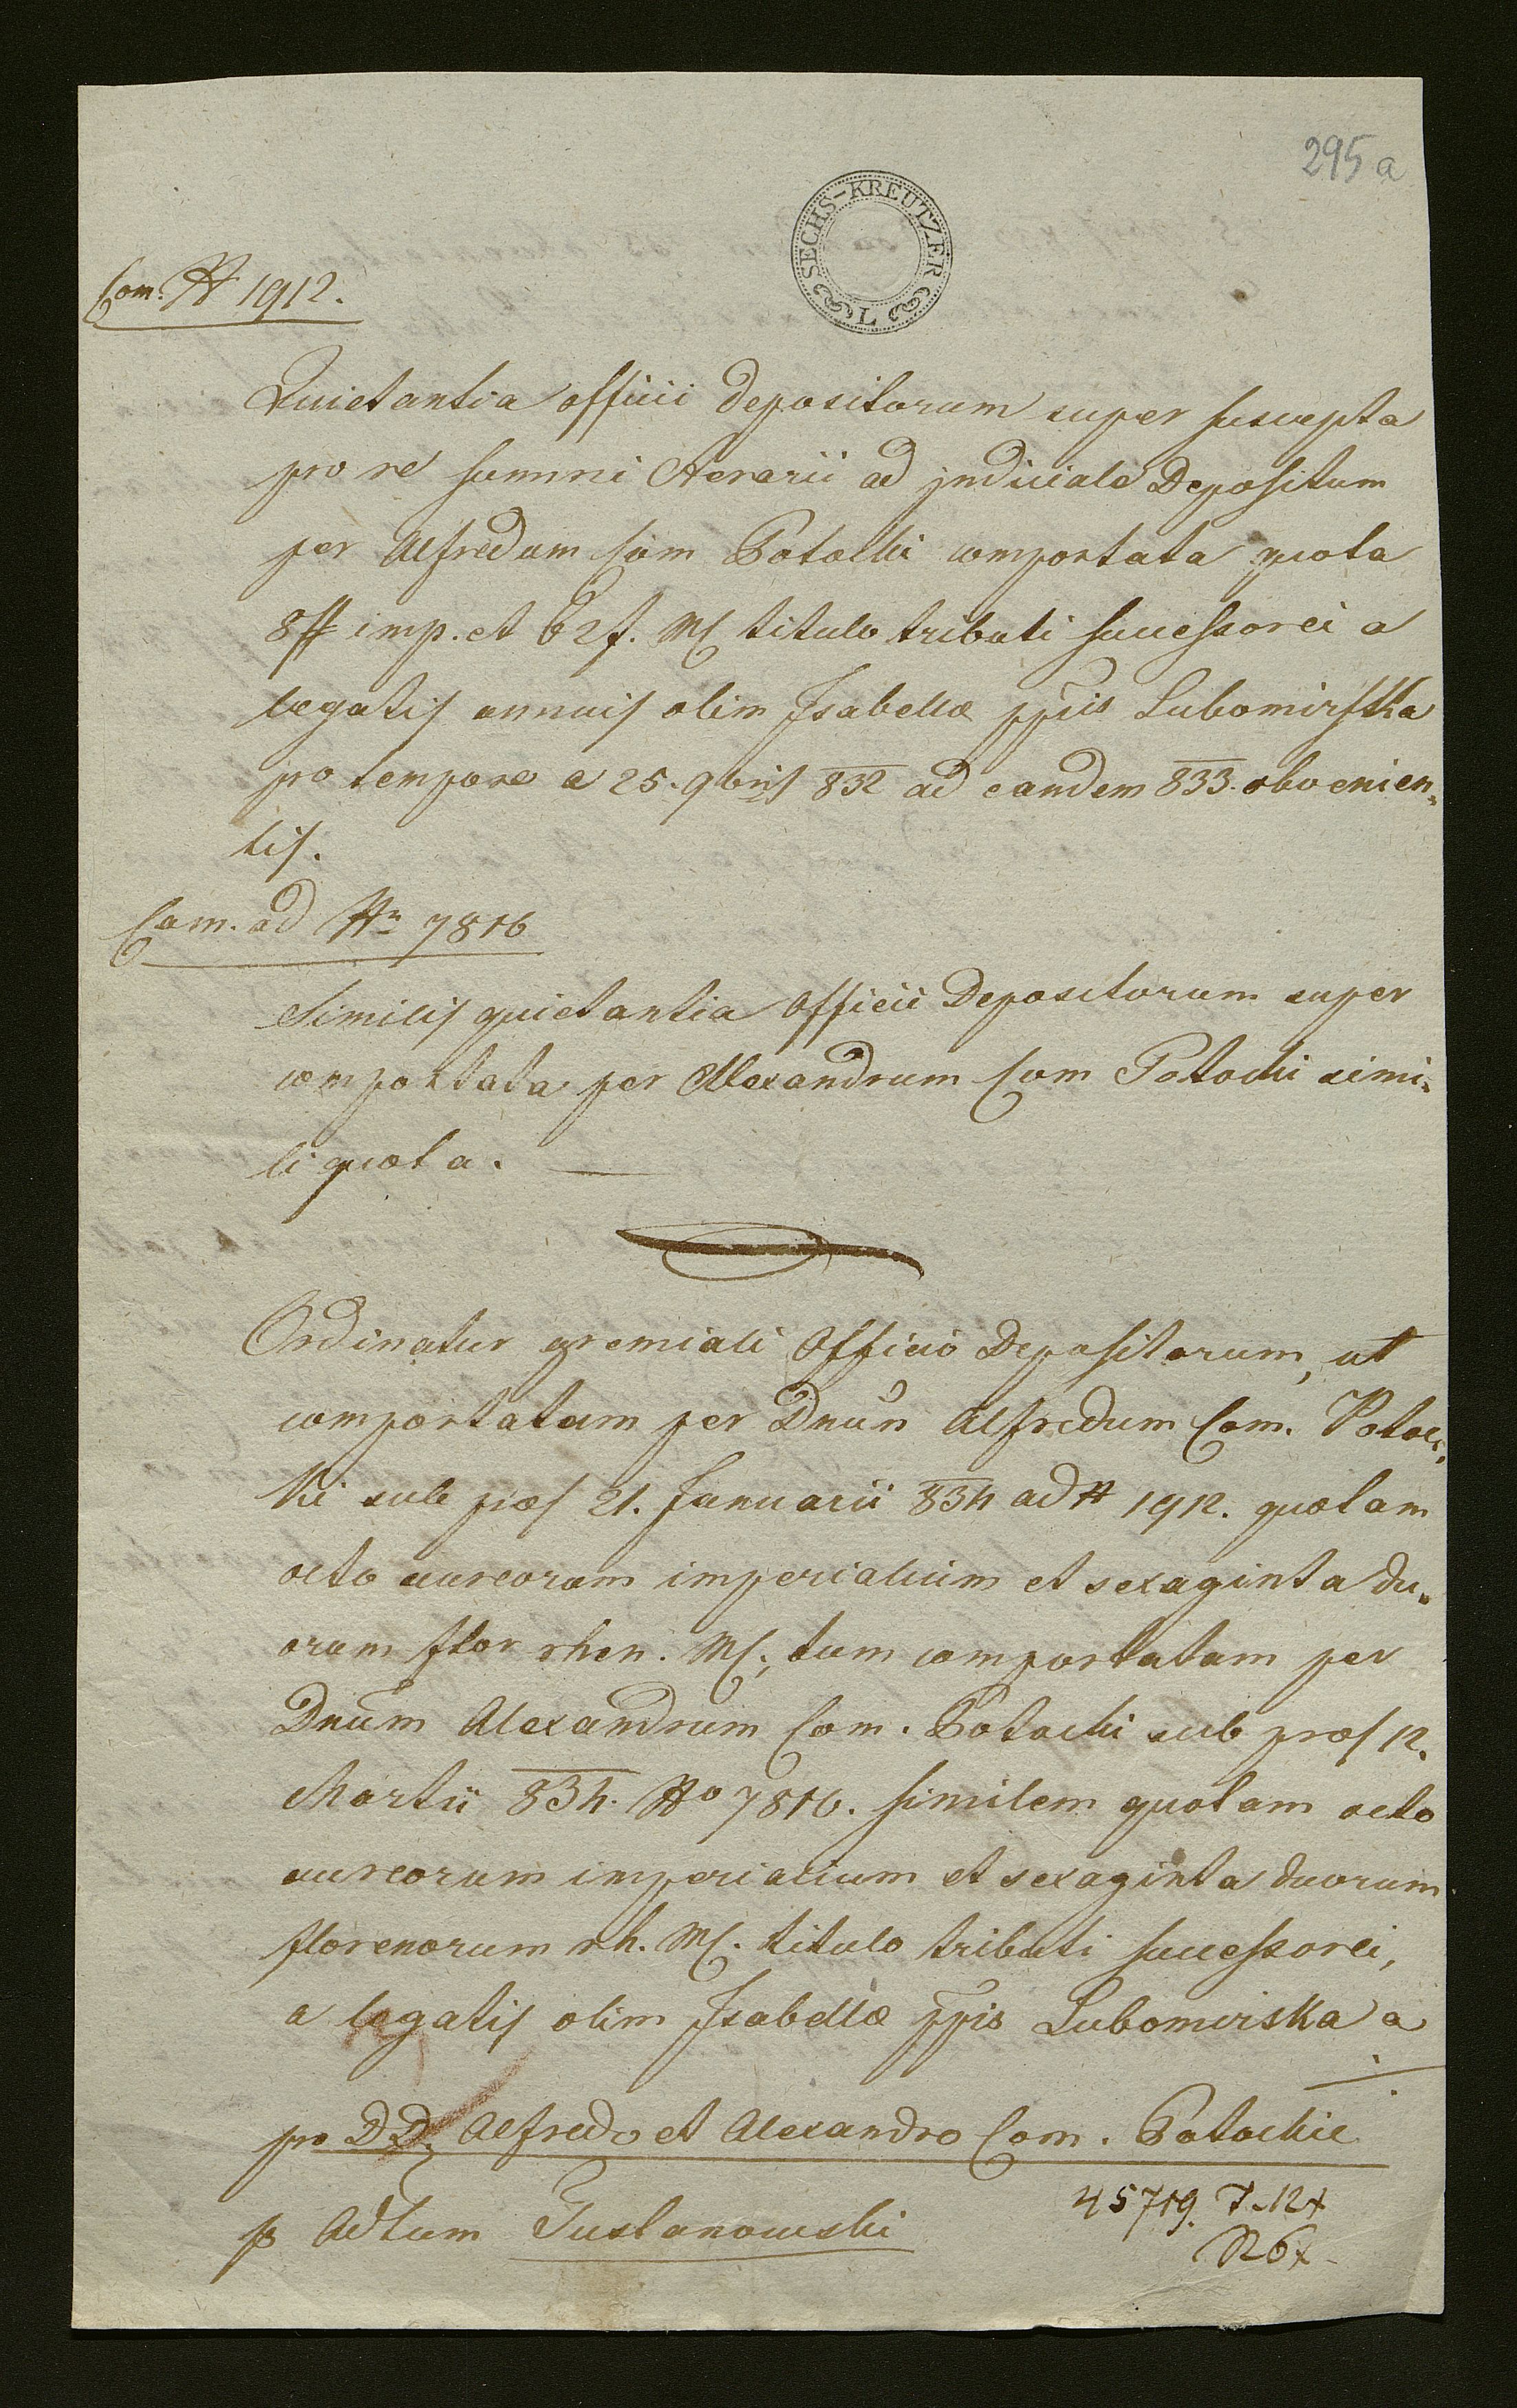 295 a
SECHS-KREUTZER
L
Com: N 1912.
Quietantia officii Depositorum super suscepta
pro re summi Aerarii ad judiciale Depositum
per Alfredum Com Potocki comportata quota
8# imp. et 62 f. MC titulo tributi successorei a
legatis annuis olim Isabellæ ppis Lubomirska
pro tempore a 25. 9bris 832 ad eandem 833. obvenien„
tis.
Com. ad Nr 7816
Similis quietantia Officii Depositorum super
comportata per Alexandrum Com Potocki simi„
li quota.
Ordinatur gremiali Officio Depositorum, ut
comportatam per Dnum Alfredum Com. Potoc„
ki sub præs 21. Januarii 834 ad N 1912. quotam
octo aureorum imperialium et sexaginta du„
orum flor rhen. MC., tum comportatam per
Dnum Alexandrum Com. Potocki sub præs 12.
Martii 834. No 7816. similem quotam octo
aureorum imperialium et sexaginta duorum
florenorum rh. MC. titulo tributi successorei,
a legatis olim Isabellæ ppis Lubomirska a
pro DD. Alfredo et Alexandro Com. Potockie
p Adtum Tustanowski
45719. T. 12x
R 6x